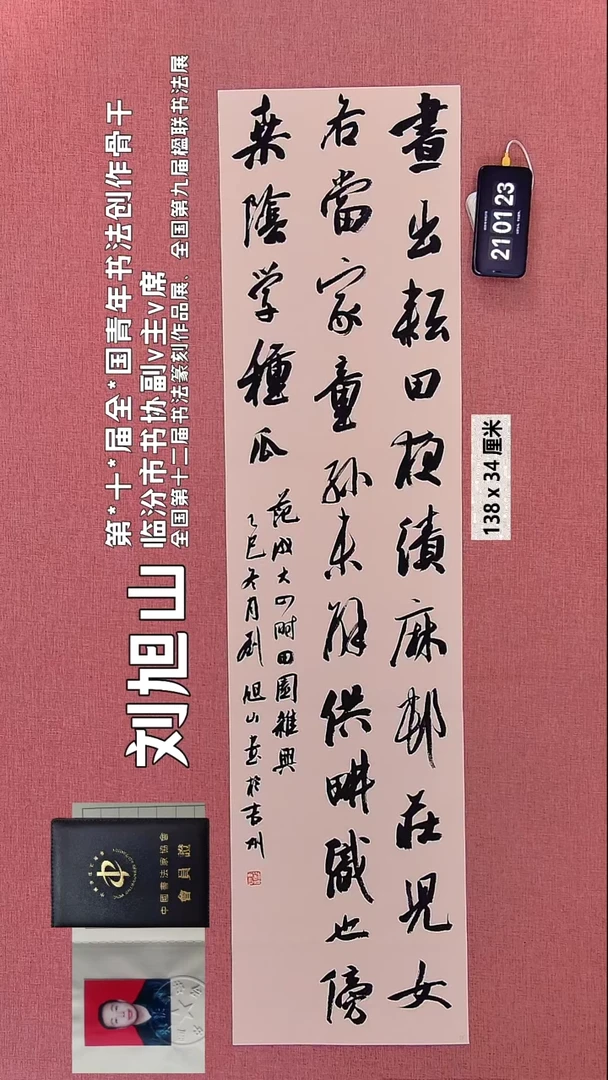 晝出耘田夜績麻邨莊児女
各當家童孫未解供畊織也傍
桒陰学種瓜
范成大四时田園雜興
乙巳冬月刘旭山書於吉州
刘旭山
第*十*届全*国青年书法创作骨干
临汾市书协副v主v席
全国第十二届书法篆刻作品展、全国第九届楹联书法展
中國書法家協會
會員證
21 01 23
138 x 34 厘米